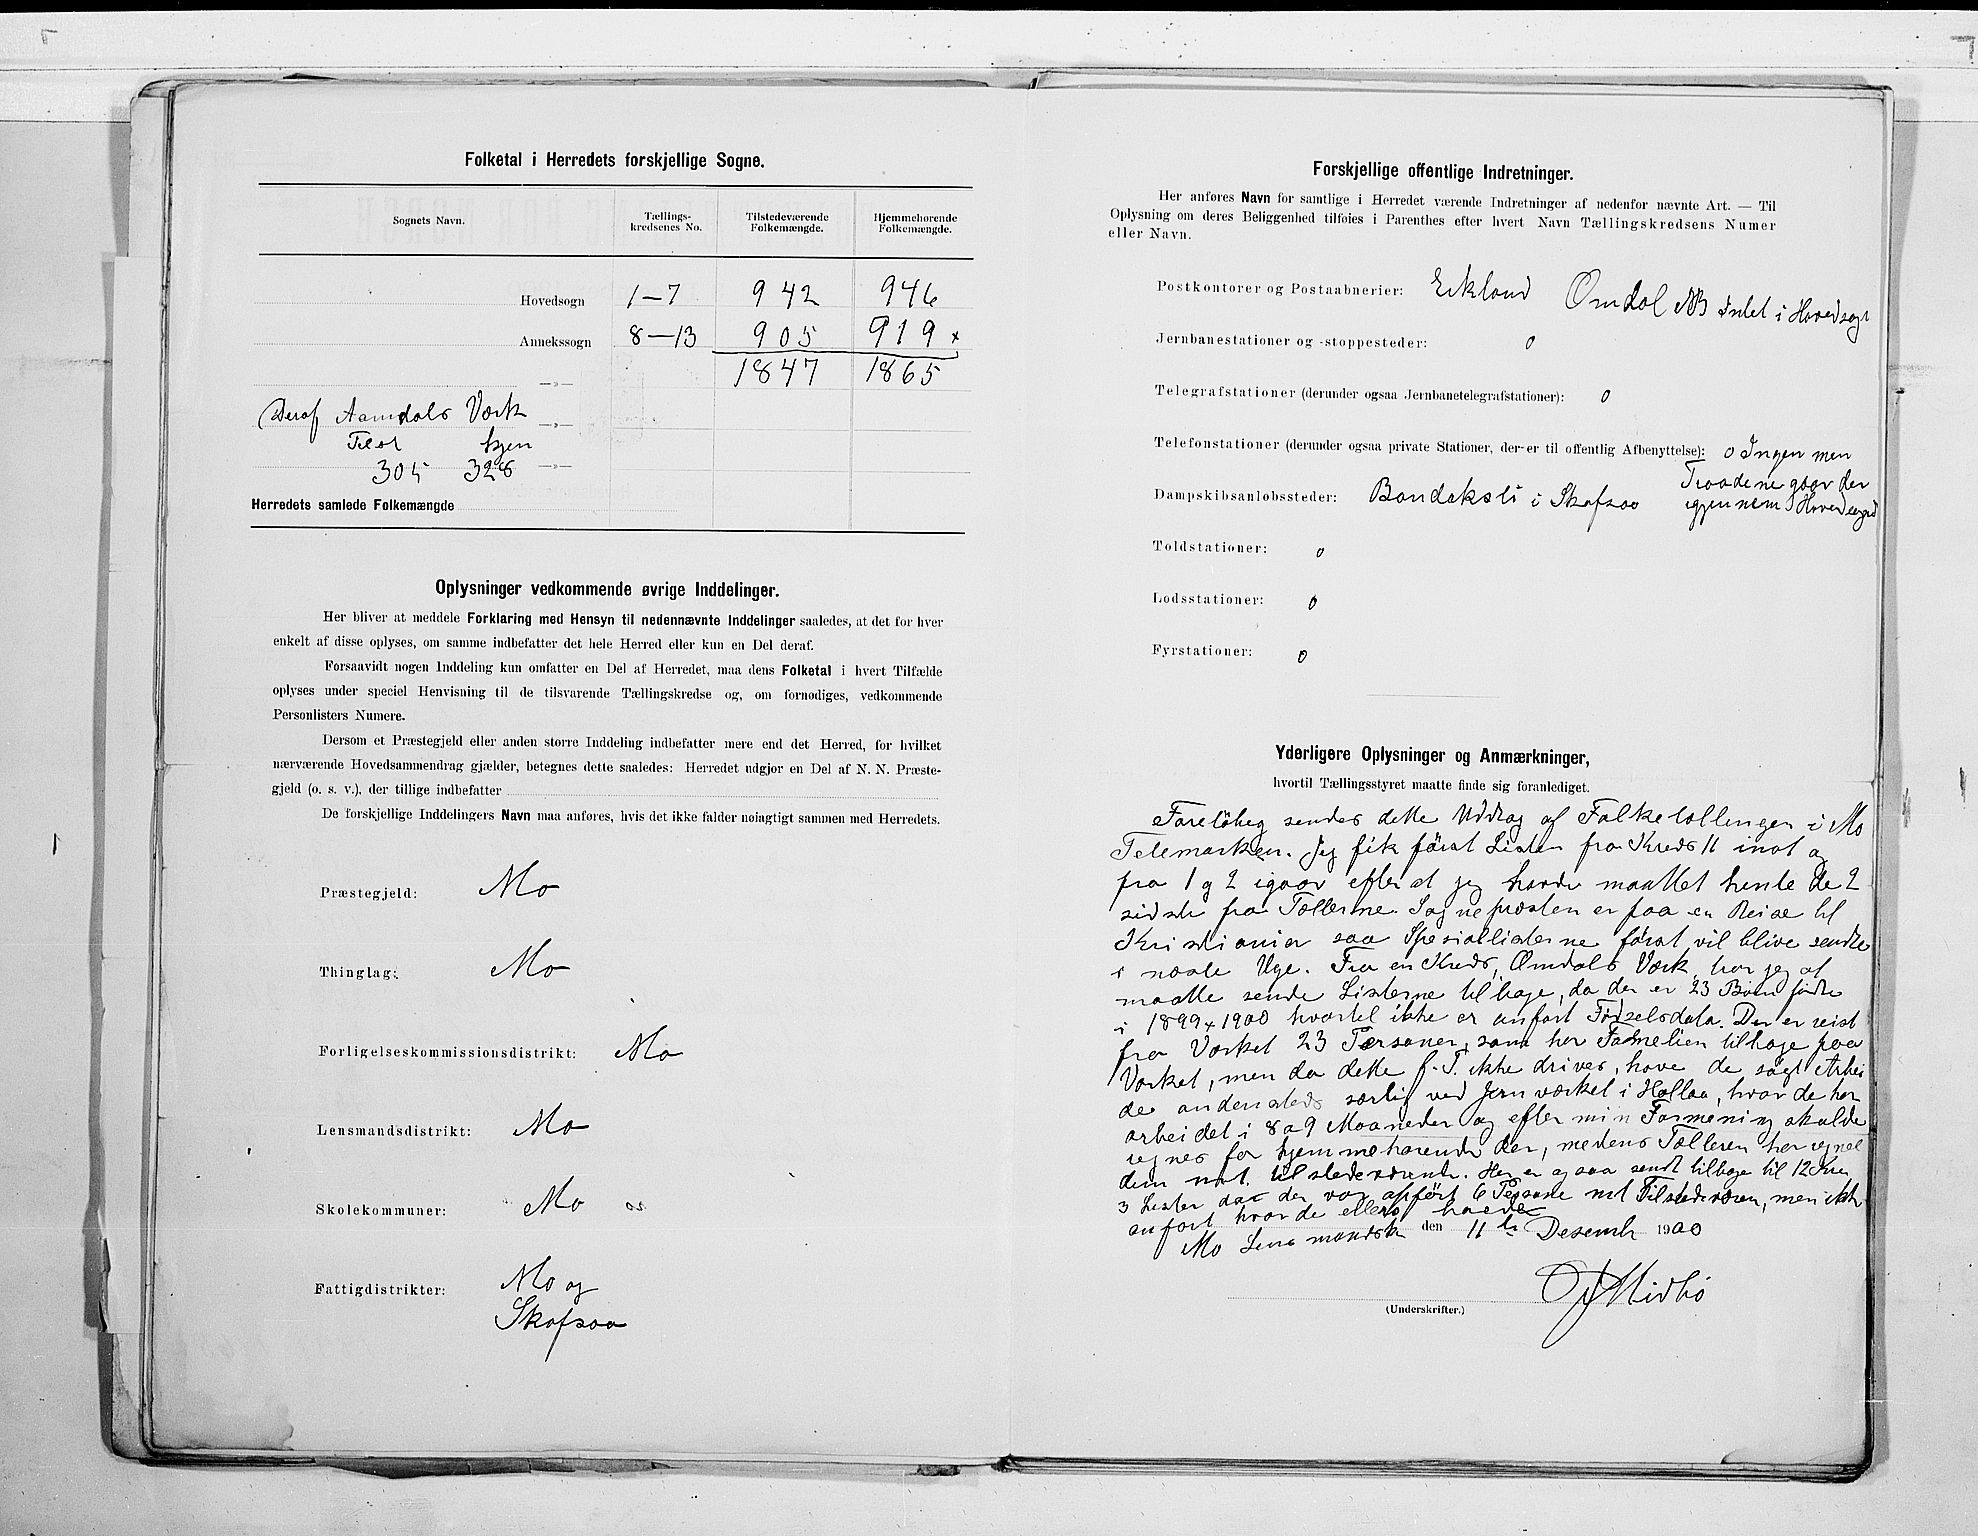 Folketal i Herredets forskjellige Sogne.
Sognets Navn. Tællings-kredsenes No. Tilstedeværende Folkemængde. Hjemmehørende Folkemængde.
Hovedsogn 1-7 942 946
Annekssogn 8-13 905 919 x
—»— 1847 1865
Deraf Aamdals Værk —»—
Tilst hjem
305 328 —»—
Herredets samlede Folkemængde
Oplysninger vedkommende øvrige Inddelinger.
Her bliver at meddele Forklaring med Hensyn til nedennævnte Inddelinger saaledes, at det for hver
enkelt af disse oplyses, om samme indbefatter det hele Herred eller kun en Del deraf.
Forsaavidt nogen Inddeling kun omfatter en Del af Herredet, maa dens Folketal i hvert Tilfælde
oplyses under speciel Henvisning til de tilsvarende Tællingskredse og, om fornødiges, vedkommende
Personlisters Numere.
Dersom et Præstegjeld eller anden større Inddeling indbefatter mere end det Herred, for hvilket
nærværende Hovedsammendrag gjælder, betegnes dette saaledes: Herredet udgjør en Del af N. N. Præste-
gjeld (o. s. v.), der tillige indbefatter
De forskjellige Inddelingers Navn maa anføres, hvis det ikke falder nøiagtigt sammen med Herredets.
Præstegjeld: Mo
Thinglag: Mo
Forligelseskommissionsdistrikt: Mo
Lensmandsdistrikt: Mo
Skolekommuner: Mo
Fattigdistrikter: Mo og
Skafsaa
Forskjellige offentlige Indretninger.
Her anføres Navn for samtlige i Herredet værende Indretninger af nedenfor nævnte Art. — Til
Oplysning om deres Beliggenhed tilføies i Parenthes efter hvert Navn Tællingskredsens Numer
eller Navn.
Postkontorer og Postaabnerier: Eklund Omdal NB Intet i Hovedsogn
Jernbanestationer og -stoppesteder: 0
Telegrafstationer (derunder ogsaa Jernbanetelegrafstationer): 0
Telefonstationer (derunder ogsaa private Stationer, der er til offentlig Afbenyttelse): 0 Ingen men
Traadene gaar der
igjennem Hovedsognet
Dampskibsanløbssteder: Bandaksli i Skafsaa
Toldstationer: 0
Lodsstationer: 0
Fyrstationer: 0
Yderligere Oplysninger og Anmærkninger,
hvortil Tællingsstyret maatte finde sig foranlediget.
Foreløbig sendes dette Uddrag af Folketællingen i Mo
Telemarken. Jeg fik først Listen fra Kreds 11 inat og
fra 1 og 2 igaar efter at jeg havde maattet hente de 2
sidste fra Tællerne. Sognepræsten er paa en Reise til
Kristiania saa Speciallisterne først vil blive sendte
i næste Uge. Fra en Kreds, Omdals Værk, har jeg at
maatte sende Listerne tilbage, da der er 23 Børn fødte
i 1899 x 1900 hvortil ikke er anført Fødselsdata. Der er reist
fra Værket 23 Personer, som har Familien tilbage paa
Værket, men da dette f. T. ikke drives, have de søgt Arbei
de andensteds særlig ved Jernværket i Hollaa, hvor de har
arbeidet i 8 a 9 Maaneder og efter min Formening skulde
regnes for hjemmehørende der, medens Tælleren har regnet
dem mt. tilstedeværende. Her er ogsaa sendt tilbage til 12 Kre
3 Lister da der var anført 6 Persone mt Tilstedeværen, men ikke
anført hvor de ellers havde
Mo Lensmandsk den 11te Desemb 1900
Midbø
(Underskrifter.)